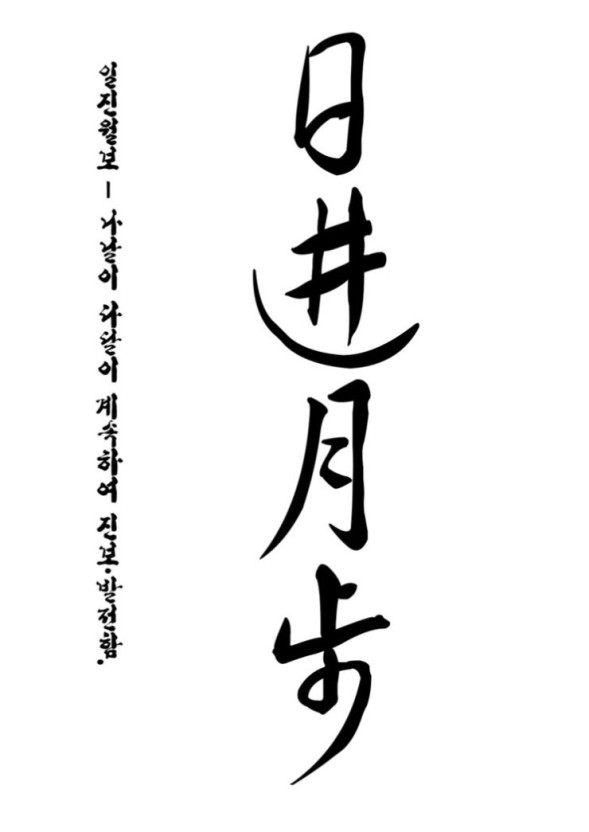 日进月步
일진월보 - 나날이 다달이 계속하여 진보·발전함.